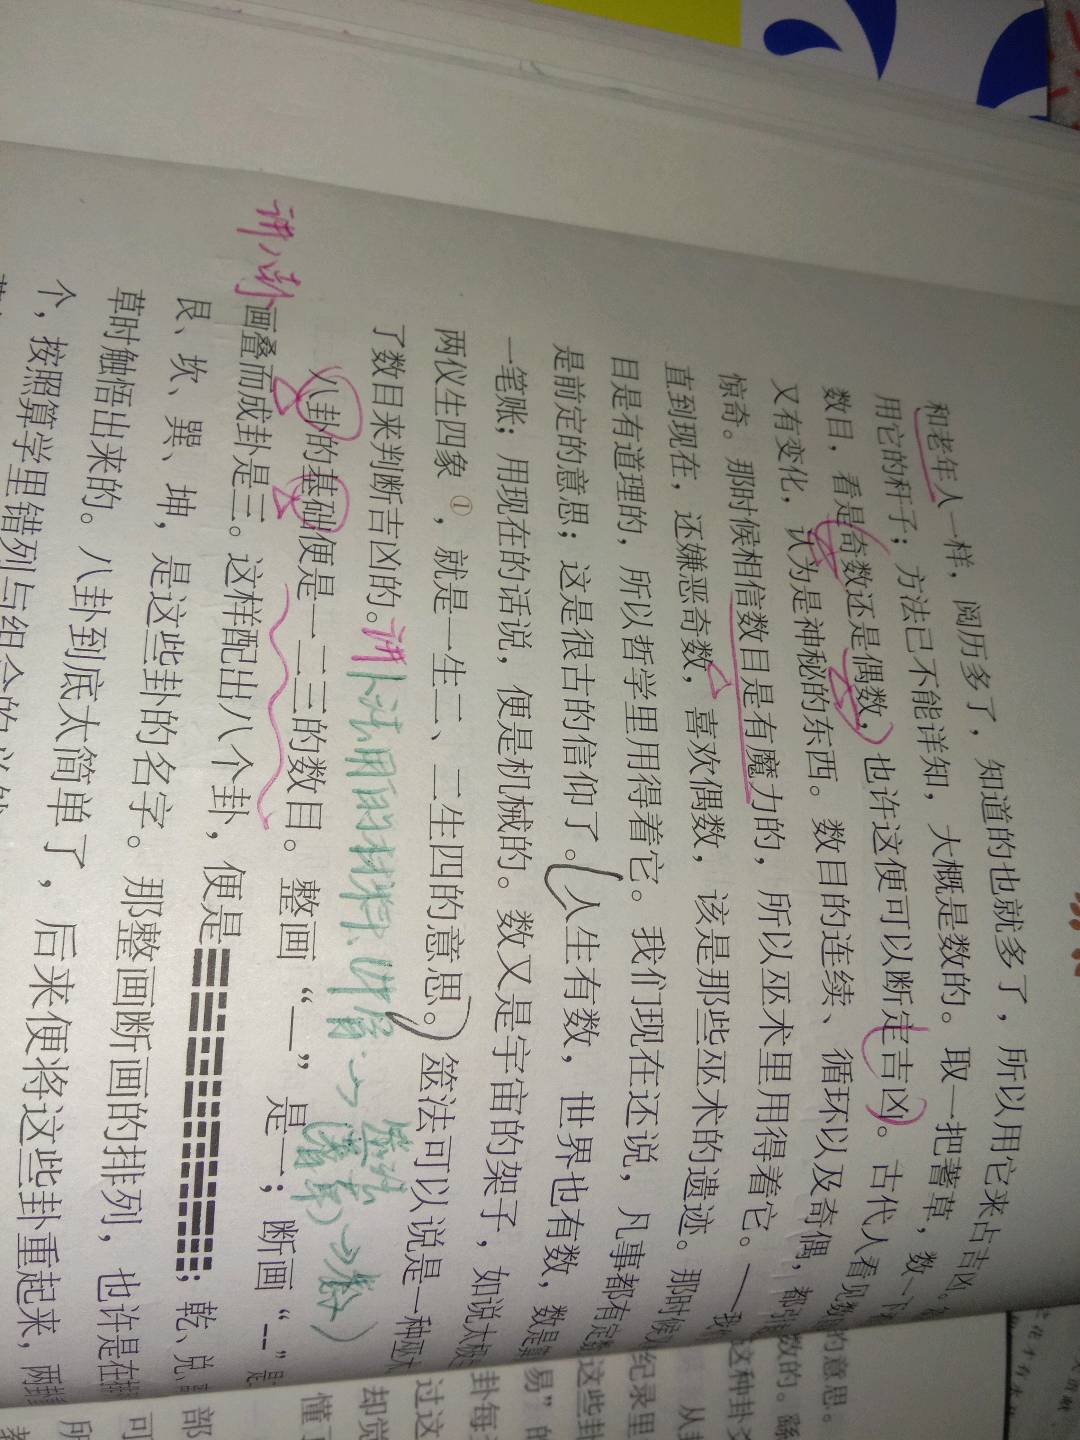 和老年人一样，阅历多了，知道的也就多了，所以用它来占吉凶。
用它的秆子；方法已不能详知，大概是数的。取一把蓍草，数一下
数目，看是奇数还是偶数，也许这便可以断定吉凶。古代人看见数
又有变化，认为是神秘的东西。数目的连续、循环以及奇偶，都
惊奇。那时候相信数目是有魔力的，所以巫术里用得着它。——我
直到现在，还嫌恶奇数，喜欢偶数，该是那些巫术的遗迹。那时候
目是有道理的，所以哲学里用得着它。我们现在还说，凡事都有定数
是前定的意思；这是很古的信仰了。人生有数，世界也有数，数是
一笔账；用现在的话说，便是机械的。数又是宇宙的架子，如说太极
两仪生四象①，就是一生二、二生四的意思。筮法可以说是一种巫术
了数目来判断吉凶的。
讲卜法用的材料、
筮法
蓍草
数
讲八卦
八卦的基础便是一二三的数目。整画“—”是一；断画“--”是
画叠而成卦是三。这样配出八个卦，便是☰☱☲☳☶☵☴☷；乾、兑
艮、坎、巽、坤，是这些卦的名字。那整画断画的排列，也许是在排
草时触悟出来的。八卦到底太简单了，后来便将这些卦重起来，两
个，按照算学里错列与组合的
的意思。
数的。
这种卦爻
从
纪录里
这些卦
易”的
卦每
过这
却觉
懂
部
可
所